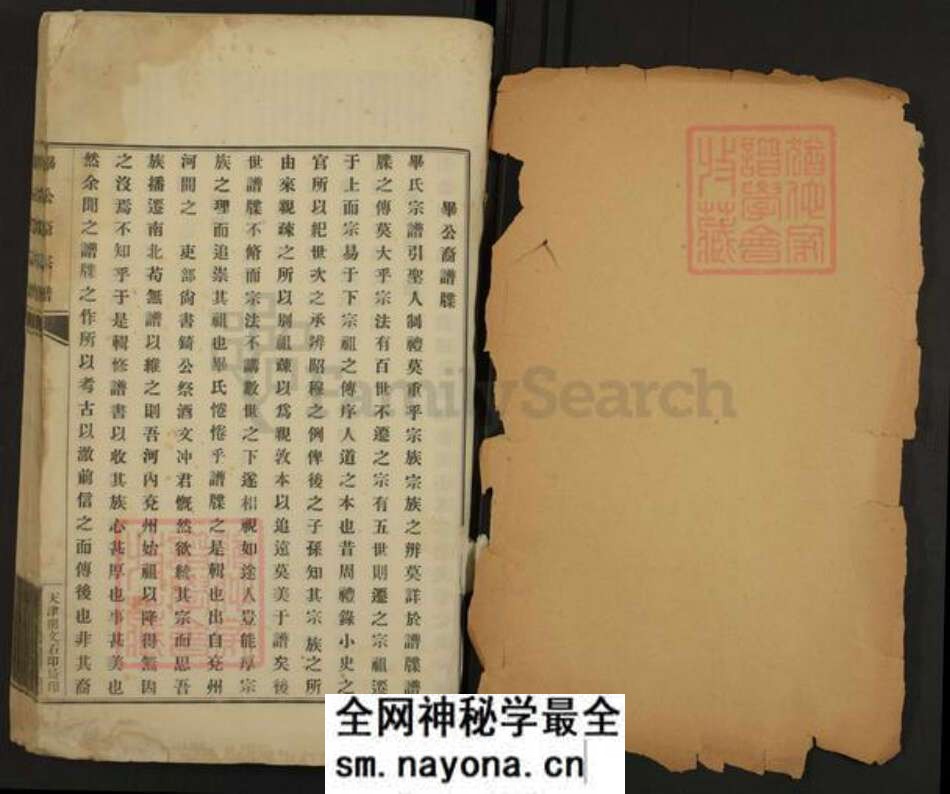 畢公裔譜牒
畢氏宗譜引聖人制禮莫重乎宗族宗族之辨莫詳於譜牒譜
牒之傳莫大乎宗法有百世不遷之宗有五世則遷之宗祖遷
于上而宗易于下宗祖之傳序人道之本也昔周禮錄小史之
官所以紀世次之承辨昭穆之例俾後之子孫知其宗族之所
由來親疎之所以別祖疎以為親敦本以追遠莫美于譜矣後
世譜牒不脩而宗法不講數世之下遂相視如途人豈能厚宗
族之理而追崇其祖也畢氏惓惓乎譜牒之是輯也出自兗州
河間之 吏部尚書錡公祭酒文冲君慨然欲統其宗而思吾
族播遷南北苟無譜以維之則吾河內兗州始祖以降得無因
之沒焉不知乎于是輯修譜書以收其族心甚厚也事甚美也
然余聞之譜牒之作所以考古以激前信之而傳後也非其裔
天津開文石印局印
譜學會
收藏
FamilySearch
全网神秘学最全
sm.nayona.cn